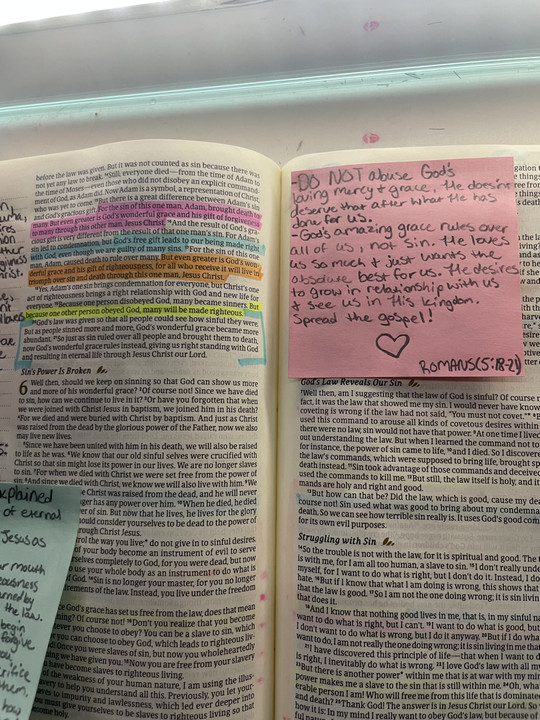 before the law was given. But it was not counted as sin because there was
not yet any law to break. ¹⁴Still, everyone died—from the time of Adam to
the time of Moses—even those who did not disobey an explicit command-
ment of God, as Adam did. Now Adam is a symbol, a representation of Christ,
who was yet to come. ¹⁵But there is a great difference between Adam's sin
and God's gracious gift. For the sin of this one man, Adam, brought death to
many. But even greater is God's wonderful grace and his gift of forgiveness
to many through this other man, Jesus Christ. ¹⁶And the result of God's gra-
cious gift is very different from the result of that one man's sin. For Adam's
sin led to condemnation, but God's free gift leads to our being made right
with God, even though we are guilty of many sins. ¹⁷For the sin of this one
man, Adam, caused death to rule over many. But even greater is God's won-
derful grace and his gift of righteousness, for all who receive it will live in
triumph over sin and death through this one man, Jesus Christ.
¹⁸Yes, Adam's one sin brings condemnation for everyone, but Christ's one
act of righteousness brings a right relationship with God and new life for
everyone. ¹⁹Because one person disobeyed God, many became sinners. But
because one other person obeyed God, many will be made righteous.
²⁰God's law was given so that all people could see how sinful they were.
But as people sinned more and more, God's wonderful grace became more
abundant. ²¹So just as sin ruled over all people and brought them to death,
now God's wonderful grace rules instead, giving us right standing with God
and resulting in eternal life through Jesus Christ our Lord.
Sin's Power Is Broken
6 Well then, should we keep on sinning so that God can show us more
and more of his wonderful grace? ²Of course not! Since we have died
to sin, how can we continue to live in it? ³Or have you forgotten that when
we were joined with Christ Jesus in baptism, we joined him in his death?
⁴For we died and were buried with Christ by baptism. And just as Christ
was raised from the dead by the glorious power of the Father, now we also
may live new lives.
⁵Since we have been united with him in his death, we will also be raised
to life as he was. ⁶We know that our old sinful selves were crucified with
Christ so that sin might lose its power in our lives. We are no longer slaves
to sin. ⁷For when we died with Christ we were set free from the power of
sin. ⁸And since we died with Christ, we know we will also live with him. ⁹We
Christ was raised from the dead, and he will never
er has any power over him. ¹⁰When he died, he died
er of sin. But now that he lives, he lives for the glory
ould consider yourselves to be dead to the power of
hrough Christ Jesus.
ol the way you live; do not give in to sinful desires.
of your body become an instrument of evil to serve
selves completely to God, for you were dead, but now
use your whole body as an instrument to do what is
God. ¹⁴Sin is no longer your master, for you no longer
ments of the law. Instead, you live under the freedom
ce God's grace has set us free from the law, does that mean
nning? Of course not! ¹⁶Don't you realize that you become
ver you choose to obey? You can be a slave to sin, which
you can choose to obey God, which leads to righteous liv-
Once you were slaves of sin, but now you wholeheartedly
ng we have given you. ¹⁸Now you are free from your slavery
become slaves to righteous living.
of the weakness of your human nature, I am using the illus-
very to help you understand all this. Previously, you let your-
ves to impurity and lawlessness, which led ever deeper into
must give yourselves to be slaves to righteous living so that
ome holy.
xplained
of eternal
Jesus as
ur mouth
eousness
the law.
begin
forgive
them.
-DO NOT abuse God's
loving mercy + grace, He doesn't
deserve that after what He has
done for us.
-God's amazing grace rules over
all of us, not sin. He loves
us so much + just wants the
absolute best for us. He desires
to grow in relationship with us
+ see us in His kingdom.
Spread the gospel!
ROMANS(5:18-21)
God's Law Reveals Our Sin
⁷Well then, am I suggesting that the law of God is sinful? Of course n
fact, it was the law that showed me my sin. I would never have know
coveting is wrong if the law had not said, "You must not covet."
used this command to arouse all kinds of covetous desires within
there were no law, sin would not have that power. ⁹At one time I lived
out understanding the law. But when I learned the command not to
for instance, the power of sin came to life, ¹⁰and I died. So I discovere
the law's commands, which were supposed to bring life, brought sp
death instead. ¹¹Sin took advantage of those commands and deceived
used the commands to kill me. ¹²But still, the law itself is holy, and it
mands are holy and right and good.
¹³But how can that be? Did the law, which is good, cause my dea
course not! Sin used what was good to bring about my condemna
death. So we can see how terrible sin really is. It uses God's good com
for its own evil purposes.
Struggling with Sin
¹⁴So the trouble is not with the law, for it is spiritual and good. The t
is with me, for I am all too human, a slave to sin. ¹⁵I don't really under
myself, for I want to do what is right, but I don't do it. Instead, I do
hate. ¹⁶But if I know that what I am doing is wrong, this shows that
that the law is good. ¹⁷So I am not the one doing wrong; it is sin livin
that does it.
¹⁸And I know that nothing good lives in me, that is, in my sinful na
want to do what is right, but I can't. ¹⁹I want to do what is good, but
I don't want to do what is wrong, but I do it anyway. ²⁰But if I do wh
want to do, I am not really the one doing wrong; it is sin living in me tha
²¹I have discovered this principle of life—that when I want to do
is right, I inevitably do what is wrong. ²²I love God's law with all m
²³But there is another power within me that is at war with my min
power makes me a slave to the sin that is still within me. ²⁴Oh, wha
erable person I am! Who will free me from this life that is dominated
and death? ²⁵Thank God! The answer is in Jesus Christ our Lord. So
how it is: In my mind I really want to obey God's law, but because of